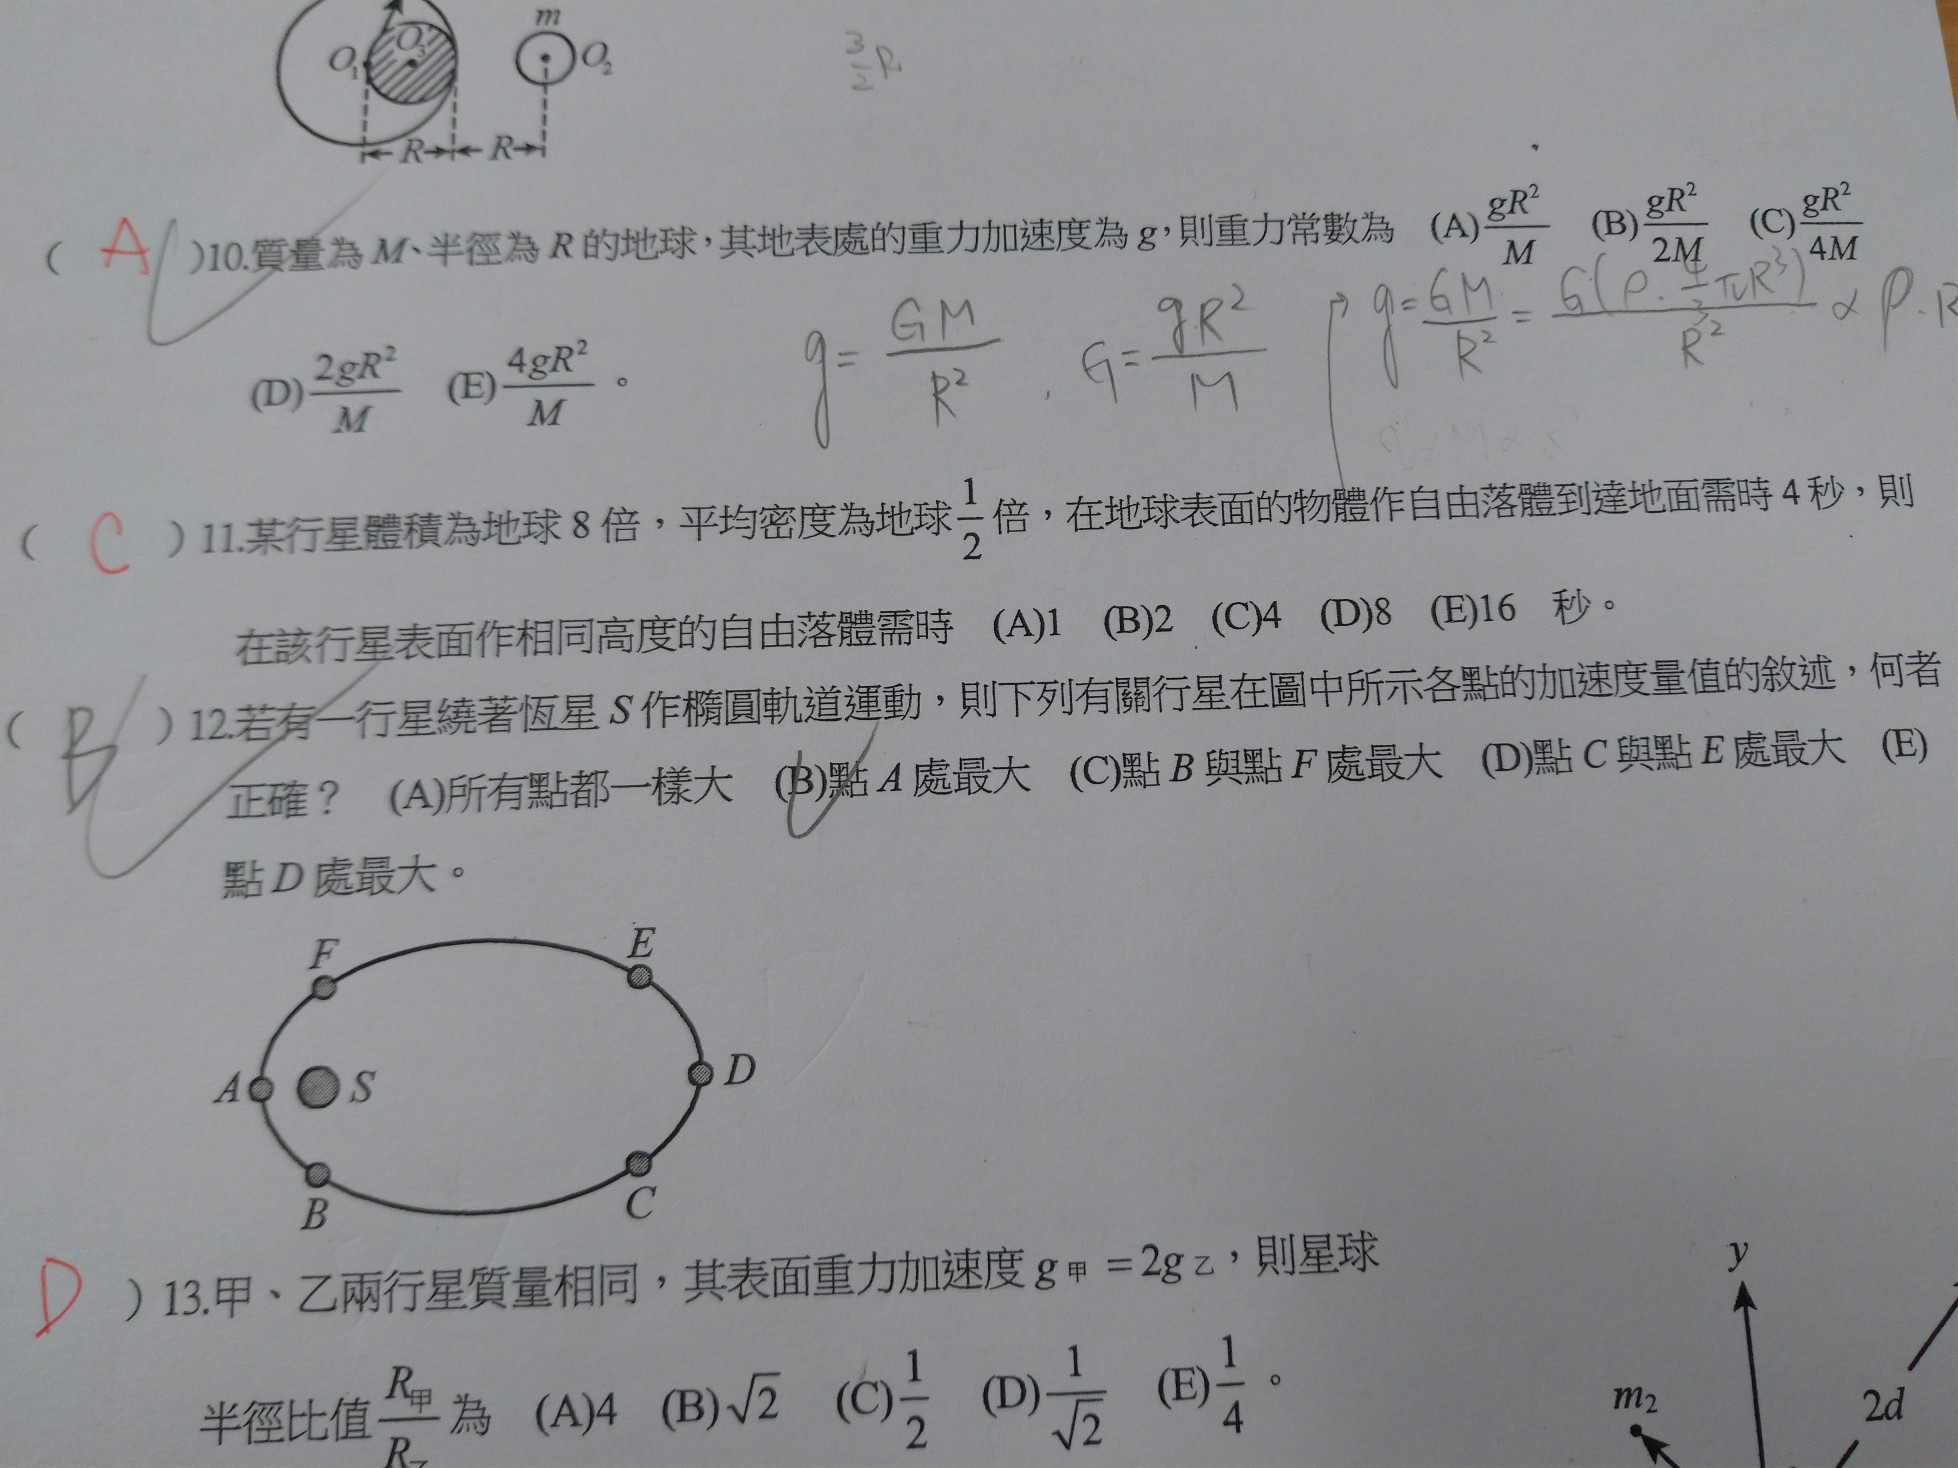 m
O₁ O₃ O₂
3/2 R
R R
( A )10.質量為 M、半徑為 R 的地球，其地表處的重力加速度為 g，則重力常數為 (A) gR²/M (B) gR²/2M (C) gR²/4M
(D) 2gR²/M (E) 4gR²/M 。
g = GM/R² , G = gR²/M
g = GM/R² = G(ρ · 4/3 πR³)/R² ∝ ρ · R
( C )11.某行星體積為地球 8 倍，平均密度為地球 1/2 倍，在地球表面的物體作自由落體到達地面需時 4 秒，則
在該行星表面作相同高度的自由落體需時 (A)1 (B)2 (C)4 (D)8 (E)16 秒。
( B )12.若有一行星繞著恆星 S 作橢圓軌道運動，則下列有關行星在圖中所示各點的加速度量值的敘述，何者
正確？ (A)所有點都一樣大 (B)點 A 處最大 (C)點 B 與點 F 處最大 (D)點 C 與點 E 處最大 (E)
點 D 處最大。
F E
A S D
B C
D )13.甲、乙兩行星質量相同，其表面重力加速度 g甲 = 2g乙，則星球
半徑比值 R甲/R乙 為 (A)4 (B)√2 (C) 1/2 (D) 1/√2 (E) 1/4 。
y
m₂ 2d